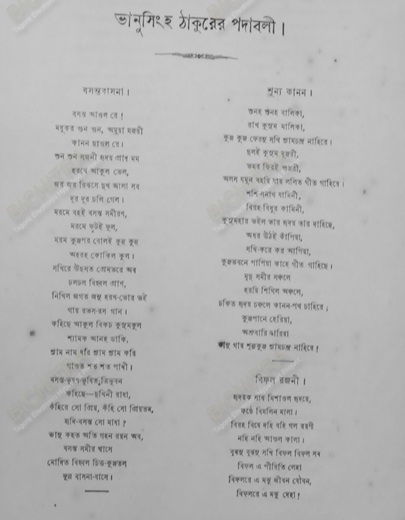 ভানুসিংহ ঠাকুরের পদাবলী।
বসন্তবাসনা।
বসন্ত আওল রে!
মধুকর গুন গুন, অমুয়া মঞ্জরী
কানন ছাওল রে।
শুন শুন সজনী হৃদয় প্রাণ মম
হরখে আকুল ভেল,
জর জর রিঝসে দুখ জ্বালা সব
দূর দূর চলি গেল।
মরমে বহই বসন্ত সমীরণ,
মরমে ফুটই ফুল,
মরম কুঞ্জপর বোলই কুহু কুহু
অহরহ কোকিল কুল।
সখিরে উছসত প্রেমভরে অব
ঢলঢল বিহ্বল প্রাণ,
নিখিল জগত জনু হরখ-ভোর ভই
গায় রভস-রস গান।
কহিছে আকুল বিকচ ফুলকুল
শ্যামক আনহ ডাকি,
শ্যাম নাম ধরি শ্যাম শ্যাম করি
গাওত শত শত পাখী।
বসন্ত-ভূষণ-ভূষিত ত্রিভুবন
কহিছে—দুখিনী রাধা,
কঁহিরে সো প্রিয়, কঁহি সো প্রিয়তম,
হৃদি-বসন্ত সো মাধা?
ভানু কহত অতি গহন রয়ন অব,
বসন্ত সমীর শ্বাসে
মোদিত বিহ্বল চিত্ত-কুঞ্জতল
ফুল্ল বাসনা-বাসে।
শূন্য কানন।
শুনহ শুনহ বালিকা,
রাখ কুসুম মালিকা,
কুঞ্জ কুঞ্জ ফেরনু সখি শ্যামচন্দ্র নাহিরে।
দুলই কুসুম মুঞ্জরী,
ভমর ফিরই গুঞ্জরী,
অলস যমুন বহয়ি যায় ললিত গীত গাহিরে।
শশি সনাথ যামিনী,
বিরহ বিধুর কামিনী,
কুসুমহার ভইল ভার হৃদয় তার দাহিছে,
অধর উঠই কাঁপিয়া,
সখি-করে কর আপিয়া,
কুঞ্জভবনে পাপিয়া কাহে গীত গাহিছে।
মৃদু সমীর সঞ্চলে
হরয়ি শিথিল অঞ্চলে,
চকিত হৃদয় চঞ্চলে কানন-পথ চাহিরে;
কুঞ্জপানে হেরিয়া,
অশ্রুবারি ডারিয়া
ভানু গায় শূন্যকুঞ্জ শ্যামচন্দ্র নাহিরে!
বিফল রজনী।
হৃদয়ক সাধ মিশাওল হৃদয়ে,
কণ্ঠে বিমলিন মালা।
বিরহ বিষে দহি বহি গল রয়ণী
নহি নহি আওল কালা।
বুঝনু বুঝনু সখি বিফল বিফল সব
বিফল এ পীরিতি লেহা
বিফলরে এ মঝু জীবন যৌবন,
বিফলরে এ মঝু দেহা!